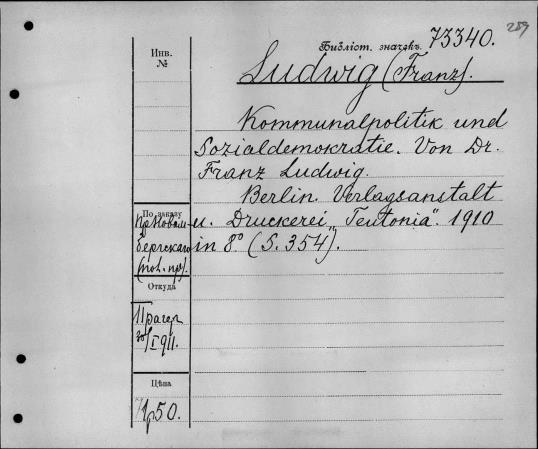 289
Библіот. значекъ. 73340.
Инв.
№
Ludwig (Franz).
Kommunalpolitik und
Sozialdemokratie. Von Dr.
Franz Ludwig.
Berlin. Verlagsanstalt
u. Druckerei „Teutonia“. 1910
in 8° (S. 354).
По заказу
бергскаго
Откуда
I 911.
Цѣна
1р50.